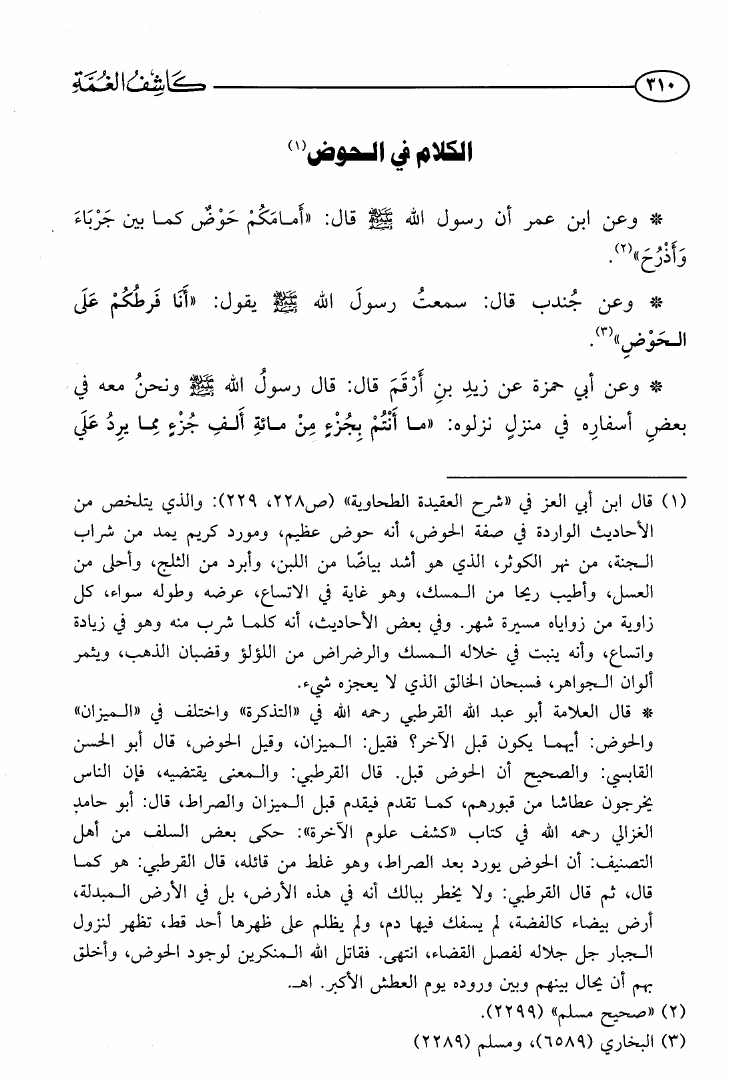 ٣١٠ كَاشِفُ الغُمَّةِ
الكلام في الـحوض(١)
* وعن ابن عمر أن رسول الله ﷺ قال: «أَمـامَكُمْ حَوْضٌ كمـا بين جَرْبَاءَ
وَأَذْرُحَ»(٢).
* وعن جُندب قال: سمعتُ رسولَ الله ﷺ يقول: «أَنَا فَرطُكُمْ عَلَى
الـحَوْضِ»(٣).
* وعن أبي حمزة عن زيدِ بنِ أَرْقَمَ قال: قال رسولُ الله ﷺ ونحنُ معه في
بعضِ أسفارِه في منزلٍ نزلوه: «مـا أَنْتُمْ بِجُزْءٍ مِنْ مـائةِ أَلـفِ جُزْءٍ مِمـا يردُ عَلَي
(١) قال ابن أبي العز في «شرح العقيدة الطحاوية» (ص٢٢٨، ٢٢٩): والذي يتلخص من
الأحاديث الواردة في صفة الحوض، أنه حوض عظيم، ومورد كريم يمد من شراب
الـجنة، من نهر الكوثر، الذي هو أشد بياضًا من اللبن، وأبرد من الثلج، وأحلى من
العسل، وأطيب ريحا من الـمسك، وهو غاية في الاتساع، عرضه وطوله سواء، كل
زاوية من زواياه مسيرة شهر. وفي بعض الأحاديث، أنه كلمـا شرب منه وهو في زيادة
واتساع، وأنه ينبت في خلاله الـمسك والرضراض من اللؤلؤ وقضبان الذهب، ويثمر
ألوان الـجواهر، فسبحان الخالق الذي لا يعجزه شيء.
* قال العلامة أبو عبد الله القرطبي رحمه الله في «التذكرة» واختلف في «الـميزان»
والحوض: أيهمـا يكون قبل الآخر؟ فقيل: الـميزان، وقيل الحوض، قال أبو الحسن
القابسي: والصحيح أن الحوض قبل. قال القرطبي: والـمعنى يقتضيه، فإن الناس
يخرجون عطاشا من قبورهم، كمـا تقدم فيقدم قبل الـميزان والصراط، قال: أبو حامدٍ
الغزالي رحمه الله في كتاب «كشف علوم الآخرة»: حكى بعض السلف من أهل
التصنيف: أن الحوض يورد بعد الصراط، وهو غلط من قائله، قال القرطبي: هو كمـا
قال، ثم قال القرطبي: ولا يخطر ببالك أنه في هذه الأرض، بل في الأرض الـمبدلة،
أرض بيضاء كالفضة، لم يسفك فيها دم، ولم يظلم على ظهرها أحد قط، تظهر لنزول
الـجبار جل جلاله لفصل القضاء، انتهى. فقاتل الله الـمنكرين لوجود الحوض، وأخلق
بهم أن يحال بينهم وبين وروده يوم العطش الأكبر. اهـ.
(٢) «صحيح مسلم» (٢٢٩٩).
(٣) البخاري (٦٥٨٩)، ومسلم (٢٢٨٩)